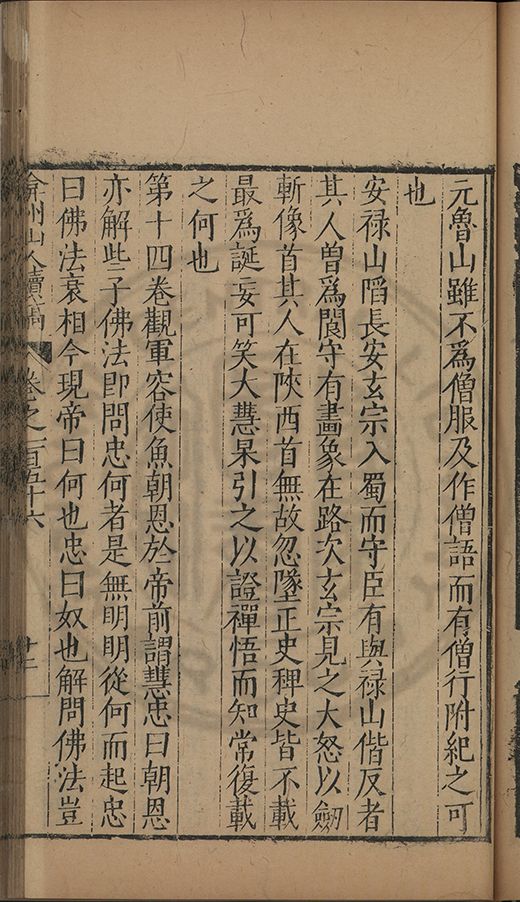 元魯山雖不爲僧服及作僧語而有僧行附紀之可
也
安禄山䧟長安玄宗入蜀而守臣有與禄山偕反者
其人曽爲閬守有畫象在路次玄宗見之大怒以劒
斬像首其人在陜西首無故忽墜正史稗史皆不載
最爲誕妄可笑大慧杲引之以證禪悟而知常復載
之何也
第十四卷觀軍容使魚朝恩於帝前謂慧忠曰朝恩
亦解此子佛法即問忠何者是無明明從何而起忠
曰佛法衰相今現帝曰何也忠曰奴也解問佛法豈
弇州山人續稿 卷之一百五十六 十二